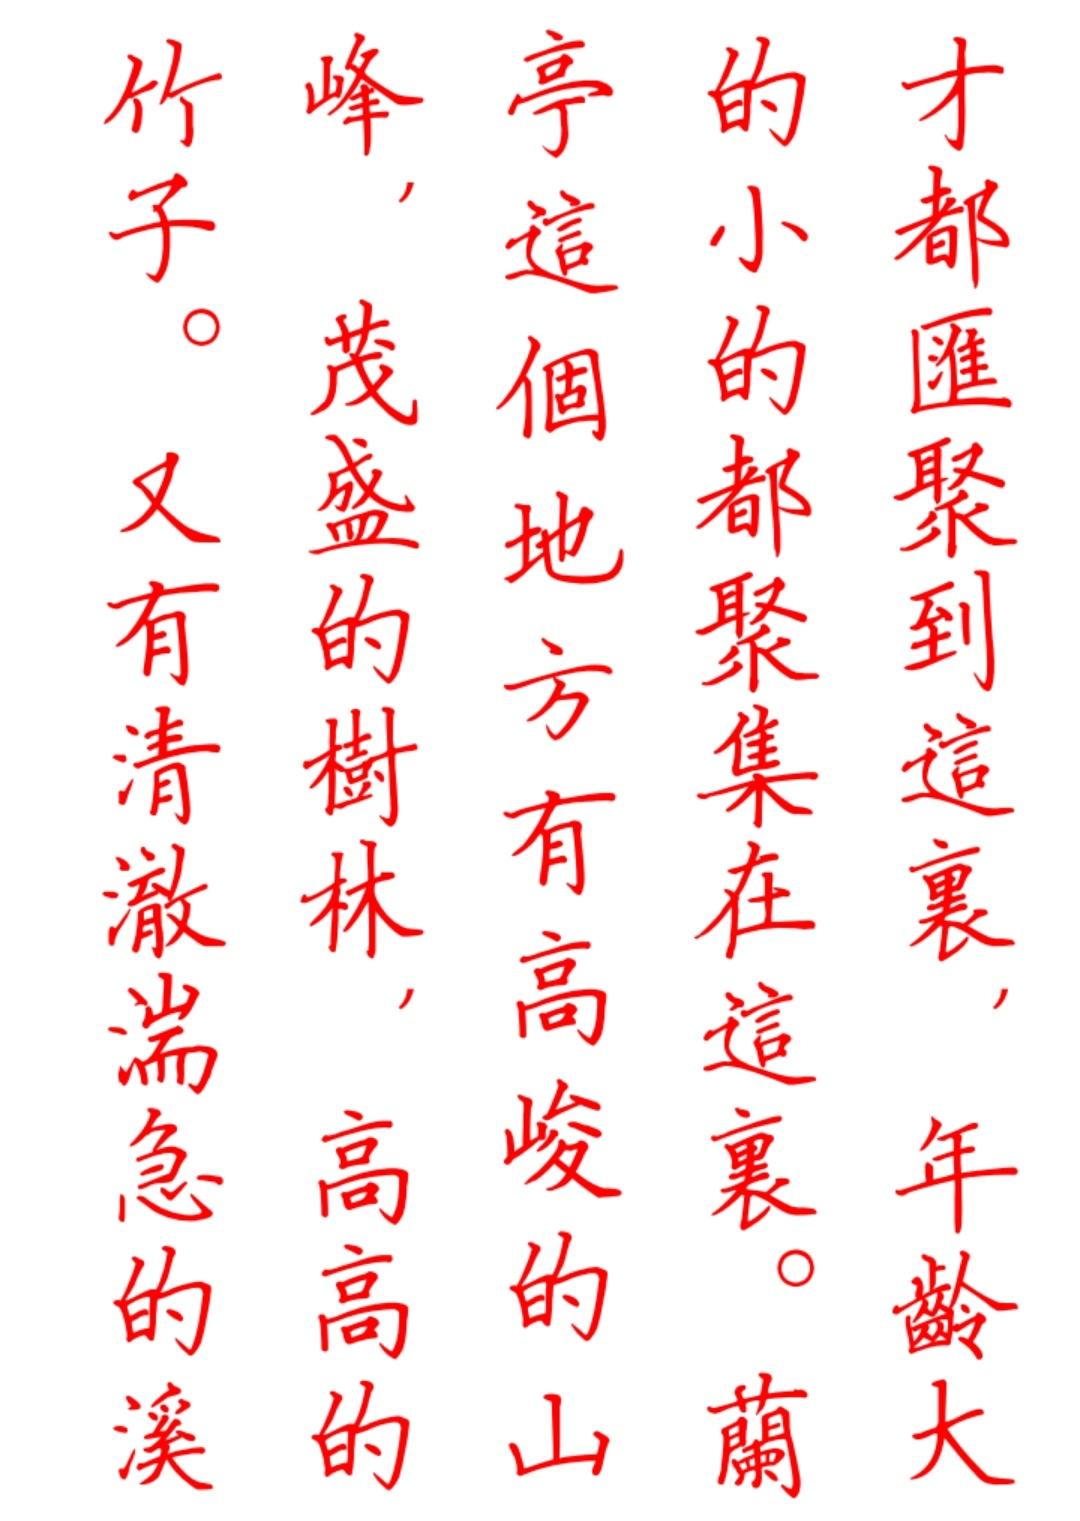 才都匯聚到這裏，年齡大
的小的都聚集在這裏。蘭
亭這個地方有高峻的山
峰，茂盛的樹林，高高的
竹子。又有清澈湍急的溪